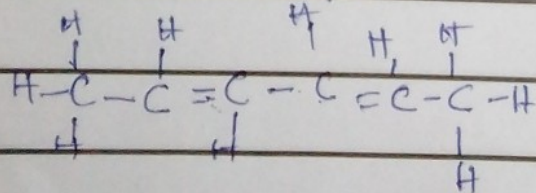 H H H H H
H-C-C=C-C=C-C-H
H H H